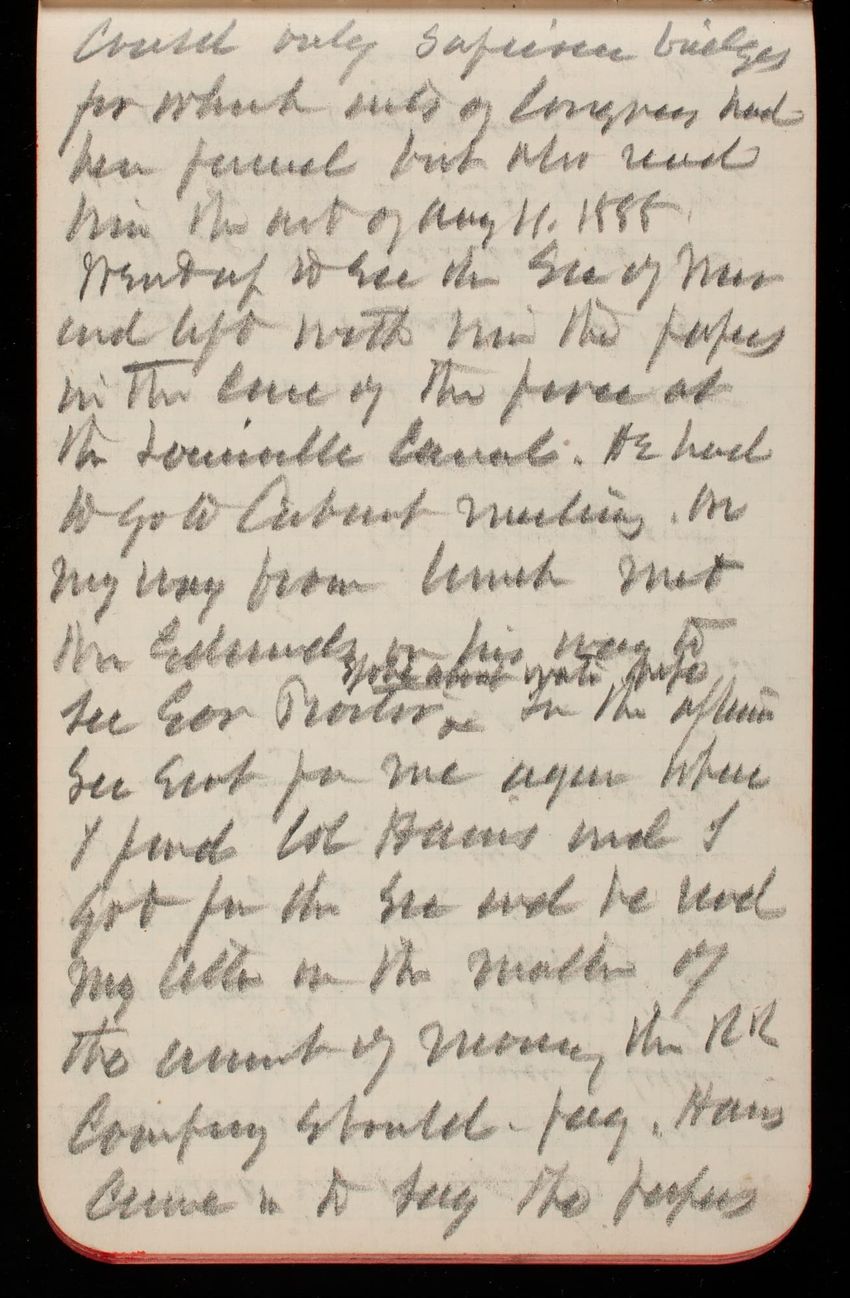 Could only supervise bridges
for which acts of Congress had
been passed but also read
him the act of Aug 11. 1888
Went up to see the Sec of War
and left with him the papers
in the case of the force at
the Louisville Canal. He had
to go to Cabinet meeting. On
my way from lunch met
Mr Edmunds on his way to
see Gov Proctor In the aftern
Sec sent for me again when
I found Col Hains and I
got for the Sec and he read
my letter on the matter of
the amount of money the RR
Company should pay. Hains
came in to say the papers